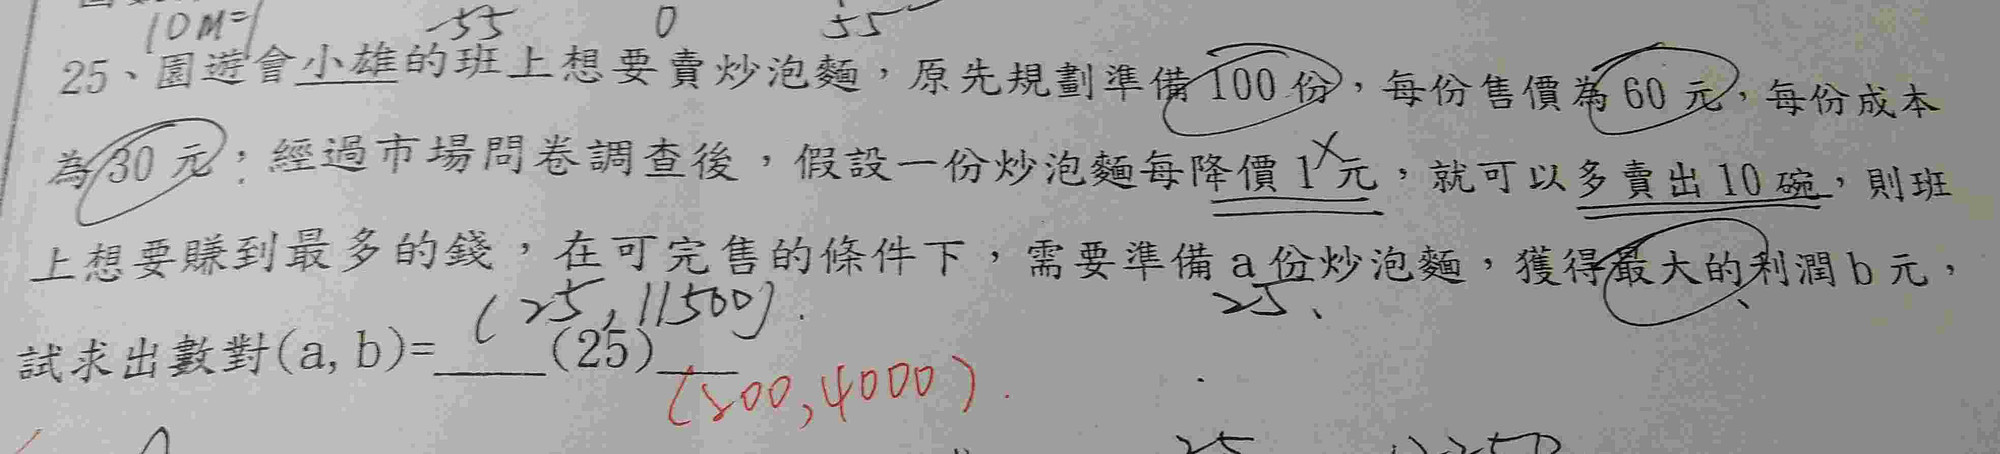 10M=1 55 0 55
25、園遊會小雄的班上想要賣炒泡麵，原先規劃準備100份，每份售價為60元，每份成本
為30元；經過市場問卷調查後，假設一份炒泡麵每降價1元，就可以多賣出10碗，則班
x
上想要賺到最多的錢，在可完售的條件下，需要準備a份炒泡麵，獲得最大的利潤b元，
(25,11500). 25、
試求出數對(a,b)=____(25)____
(500,4000).
25